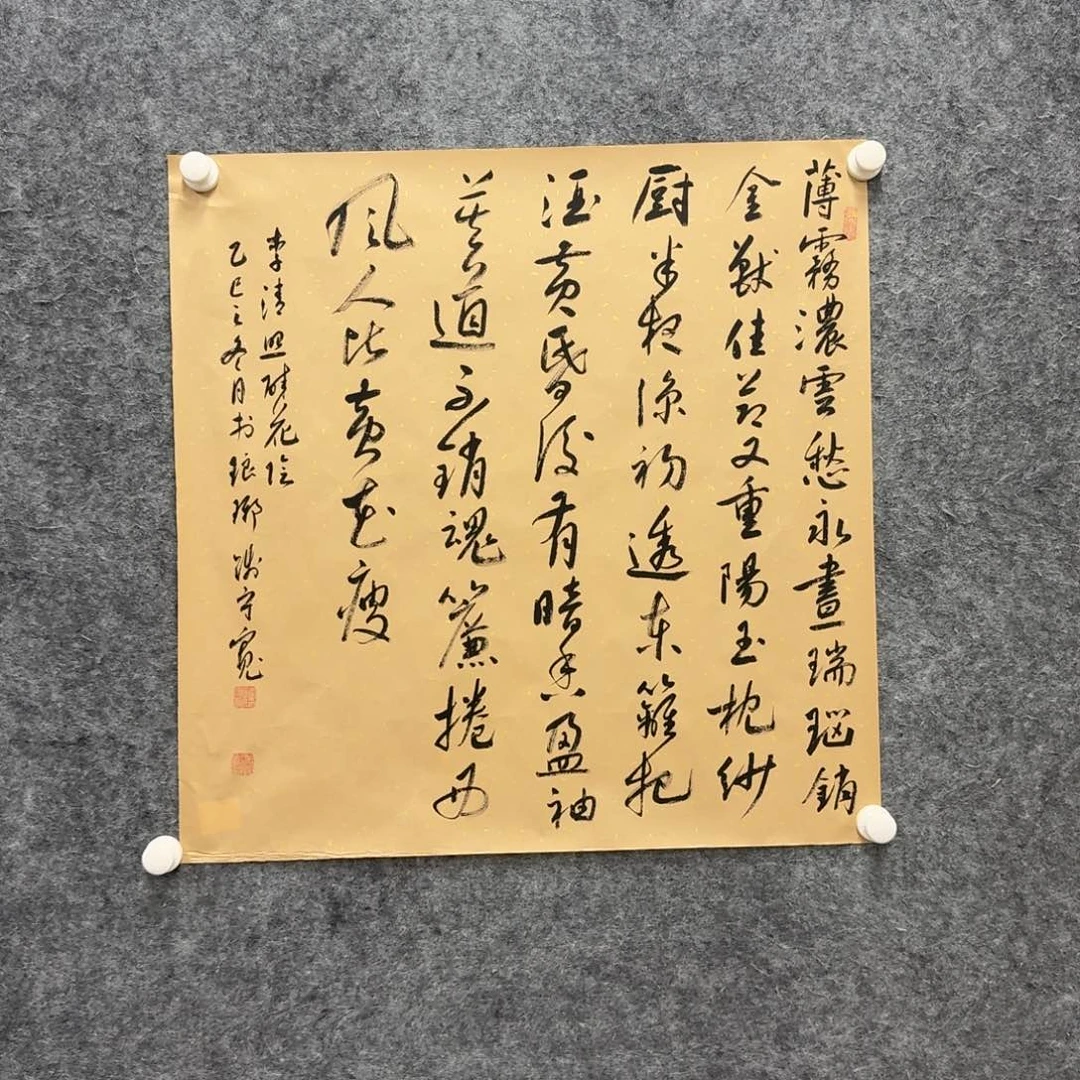 薄霧濃雲愁永晝瑞瑙銷
金獸佳节又重陽玉枕紗
厨半夜涼初透東籬把
酒黄昬後有暗香盈袖
莫道不銷魂簾捲西
風人比黄花瘦
李清照醉花陰
乙巳之冬月於琅琊謝守寬